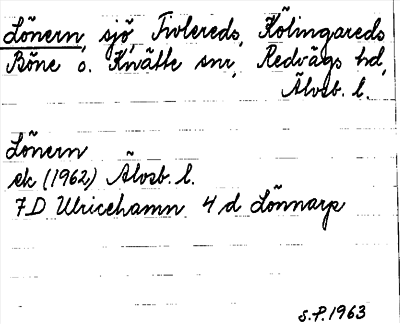 Lönern, sjö, Tivlereds, Kölingareds
Böne o. Kvätte snr, Redvägs hd,
Älvsb. l.
Lönern
ek (1962) Älvsb. l.
7D Ulricehamn 4 d Lönnarp
S.P. 1963